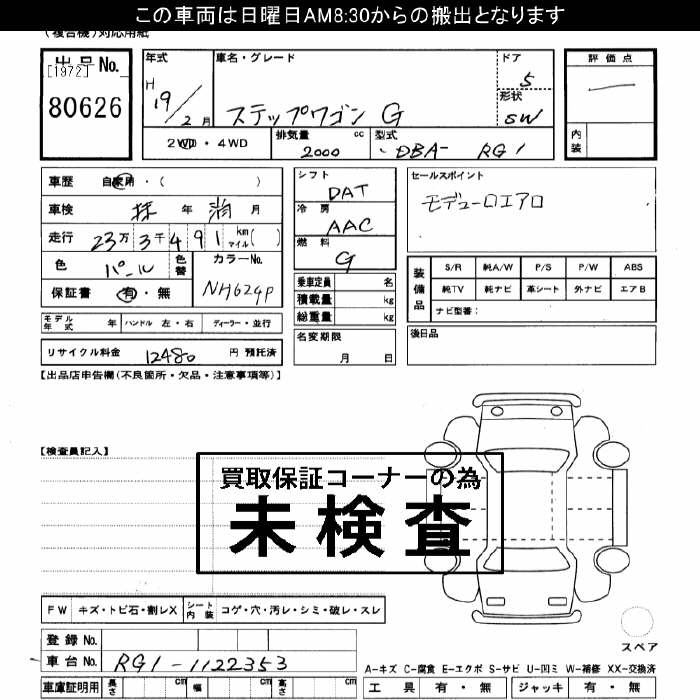 この車両は日曜日AM8:30からの搬出となります
(複合機)対応用紙
出品No.
[1972]
80626
年式
H 19/2月
車名・グレード
ステップワゴン G
ドア
5
形状
SW
評価点
内装
2WD・4WD
排気量 cc
2000
型式
DBA- RG1
車歴 自家用・( )
車検 抹 年 消 月
走行 23万3千491 km マイル( )
色 パール
色替
カラーNo.
NH624P
保証書 有・無
シフト
DAT
冷房
AAC
燃料
G
セールスポイント
モデューロエアロ
乗車定員 名
積載量 kg
総重量 kg
装備品
S/R 純A/W P/S P/W ABS
純TV 純ナビ 革シート 外ナビ エアB
ナビ型番:
モデル年式 年 ハンドル 左・右 ディーラー・並行
名変期限
月 日
後日品
リサイクル料金 12480 円 預託済
【出品店申告欄(不良箇所・欠品・注意事項等)】
【検査員記入】
買取保証コーナーの為
未検査
FW キズ・トビ石・割レX シート内装 コゲ・穴・汚レ・シミ・破レ・スレ
登録No.
車台No. RG1-1122353
スペア
A-キズ C-腐食 E-エクボ S-サビ U-凹ミ W-補修 XX-交換済
車庫証明用 長さ cm 幅 cm 高さ cm
工具 有・無 ジャッキ 有・無